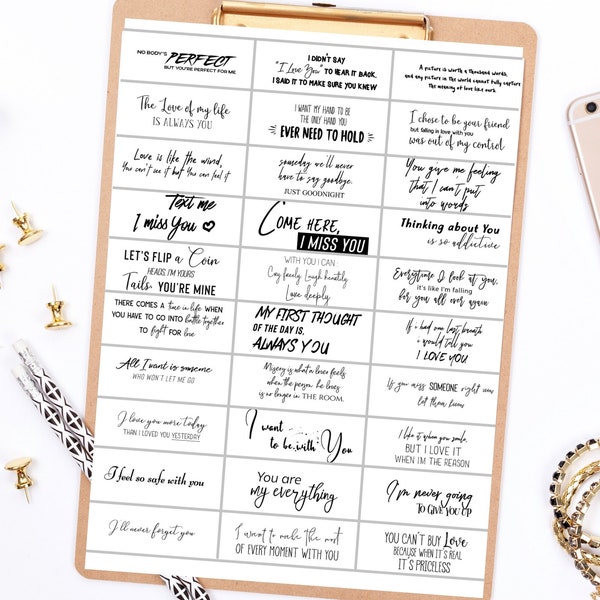 NO BODY'S PERFECT
BUT YOU'RE PERFECT FOR ME
I DIDN'T SAY
"I Love You" TO HEAR IT BACK.
I SAID IT TO MAKE SURE YOU KNEW
A picture is worth a thousand words,
and any picture in the world cannot fully capture
the meaning of love like ours.
The Love of my life
IS ALWAYS YOU
I WANT MY HAND TO BE
THE ONLY HAND YOU
EVER NEED TO HOLD
I chose to be your friend
but falling in love with you
was out of my control
Love is like the wind,
You can't see it but You can feel it
someday we'll never
have to say goodbye.
JUST GOODNIGHT
You give me feeling
That I can't put
into words
Text me
I miss You
COME HERE,
I MISS YOU
Thinking about You
is so addictive
LET'S FLIP a Coin
HEADS, I'M YOURS
Tails, YOU'RE MINE
WITH YOU I CAN
Cry freely. Laugh heartily
Love deeply.
Everytime I look at you,
it's like I'm falling
for you all over again
THERE COMES A time in life WHEN
YOU HAVE TO GO INTO battle together
TO fight FOR love
MY FIRST THOUGHT
OF THE DAY IS,
ALWAYS YOU
If i had one last breath
i would tell you
I LOVE YOU
All I want is someone
WHO WON'T LET ME GO
Misery is what a lover feels
when the person he loves
is no longer in THE ROOM.
If you miss SOMEONE right now
let them know
I love you more today
THAN I LOVED YOU YESTERDAY
I want
to be with You
I like it when you smile,
BUT I LOVE IT
WHEN I'M THE REASON
I feel so safe with you
You are
my everything
I'm never going
TO GIVE YOU UP
I'll never forget you
I want to make the most
OF EVERY MOMENT WITH YOU
YOU CAN'T BUY Love
BECAUSE WHEN IT'S REAL
IT'S PRICELESS